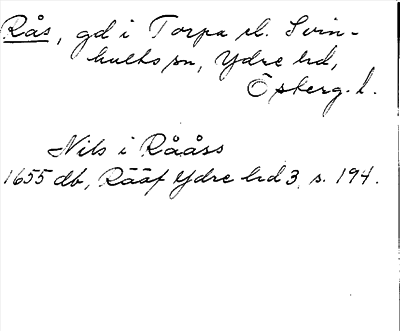 Rås, gd i Torpa sn. Svin-
hults sn, Ydre hd,
Österg. l.
Nils i Rååss
1655 db, Rääf Ydre hd 3, s. 194.